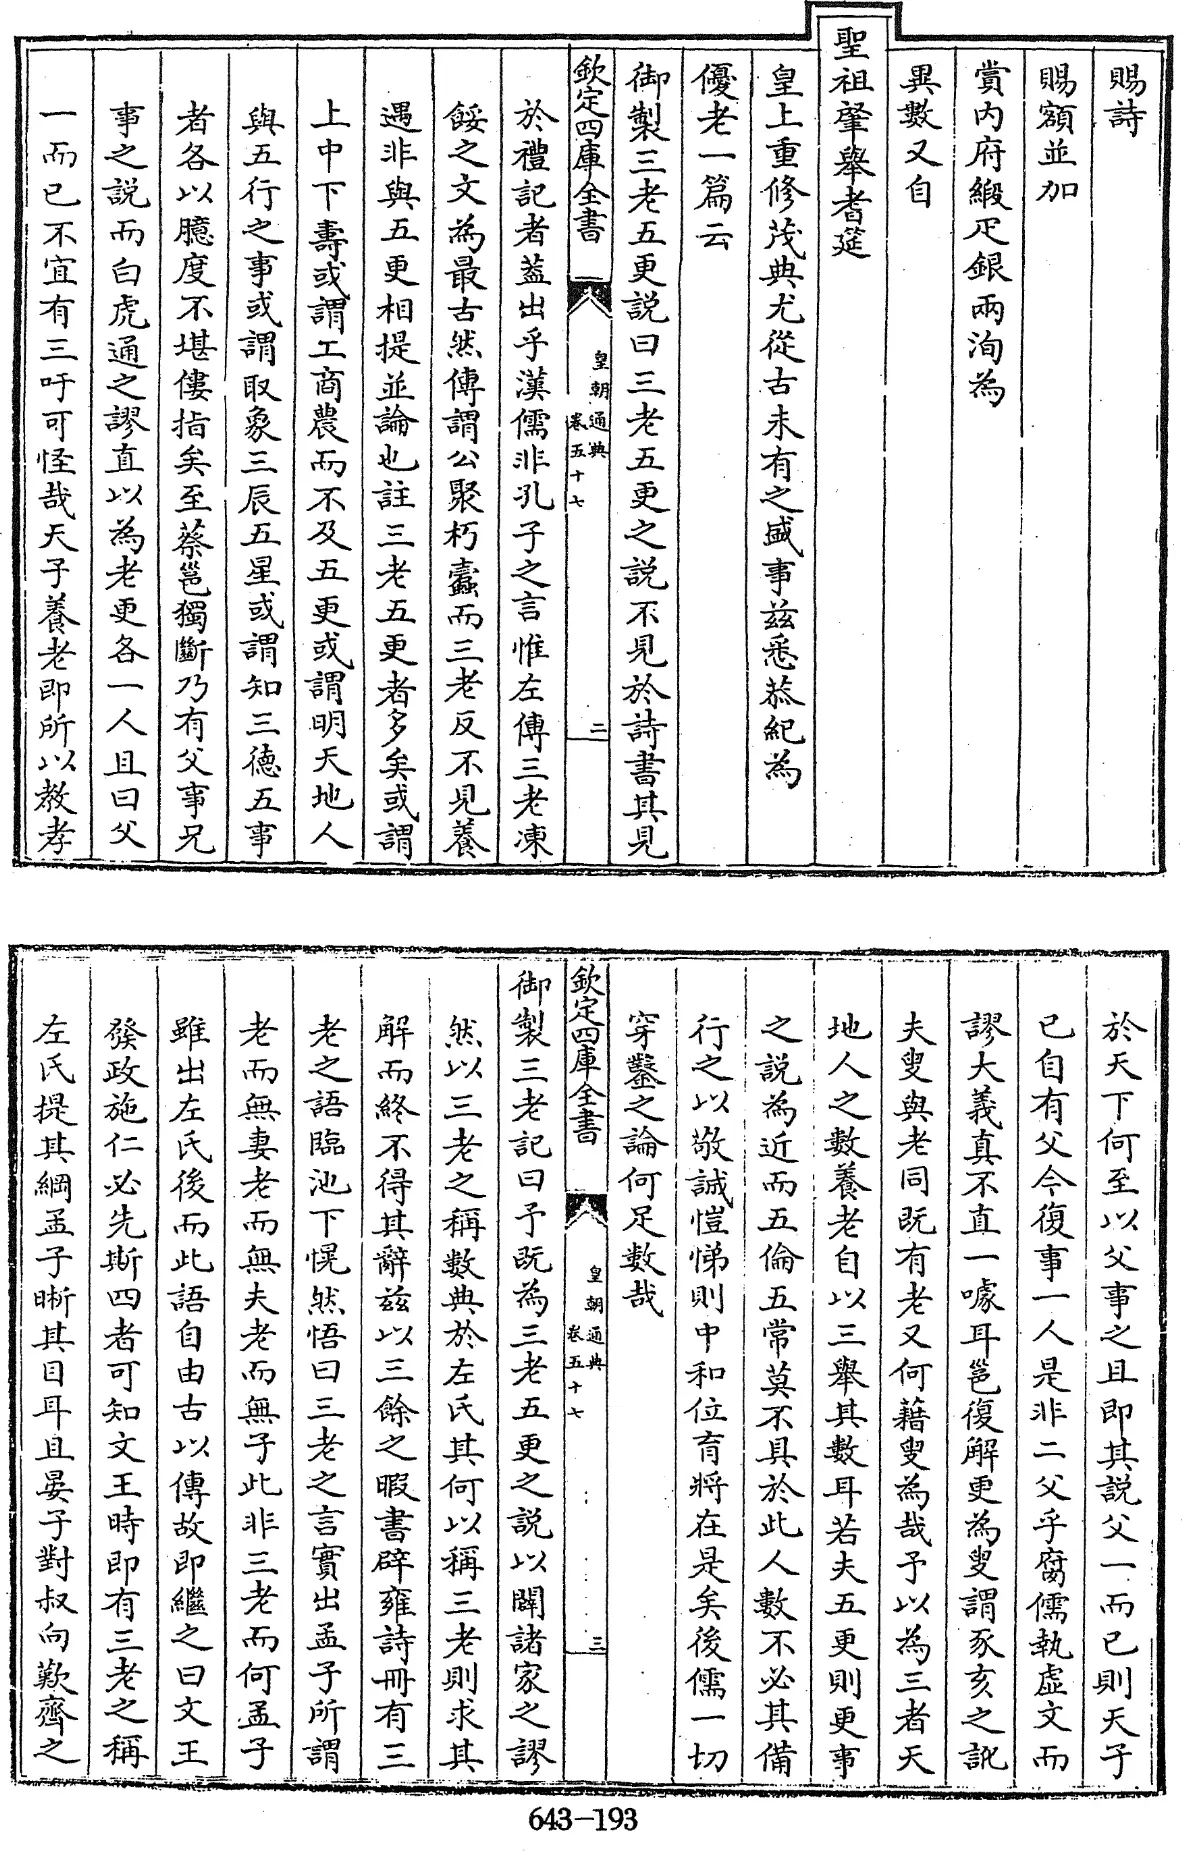 賜詩
賜額並加
賞内府緞疋銀兩洵為
異數又自
聖祖肇舉耆筵
皇上重修茂典尤從古未有之盛事兹悉恭紀為
優老一篇云
御製三老五更説曰三老五更之説不見於詩書其見
欽定四庫全書
皇朝通典
卷五十七
二
於禮記者蓋出乎漢儒非孔子之言惟左傳三老凍
餒之文為最古然傳謂公聚朽蠧而三老反不見養
遇非與五更相提並論也註三老五更者多矣或謂
上中下壽或謂工商農而不及五更或謂明天地人
與五行之事或謂取象三辰五星或謂知三德五事
者各以臆度不堪僂指矣至蔡邕獨斷乃有父事兄
事之説而白虎通之謬直以為老更各一人且曰父
一而已不宜有三吁可怪哉天子養老即所以教孝
於天下何至以父事之且即其説父一而已則天子
已自有父今復事一人是非二父乎腐儒執虛文而
謬大義真不直一噱耳邕復解更為叟謂豕亥之訛
夫叟與老同既有老又何藉叟為哉予以為三者天
地人之數養老自以三舉其數耳若夫五更則更事
之説為近而五倫五常莫不具於此人數不必其備
行之以敬誠愷悌則中和位育將在是矣後儒一切
穿鑿之論何足數哉
欽定四庫全書
皇朝通典
卷五十七
三
御製三老記曰予既為三老五更之説以闢諸家之謬
然以三老之稱數典於左氏其何以稱三老則求其
解而終不得其辭兹以三餘之暇書辟雍詩冊有三
老之語臨池下愰然悟曰三老之言實出孟子所謂
老而無妻老而無夫老而無子此非三老而何孟子
雖出左氏後而此語自由古以傳故即繼之曰文王
發政施仁必先斯四者可知文王時即有三老之稱
左氏提其綱孟子晰其目耳且晏子對叔向歎齊之
643-193